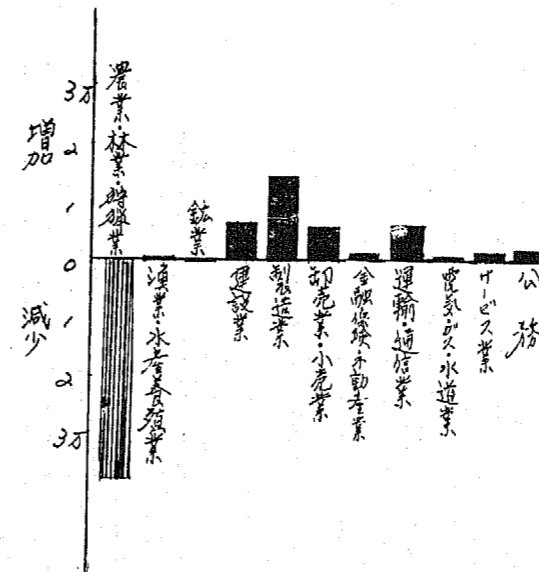 増加
減少
3万
2
1
0
1
2
3万
農業・林業・狩猟業
漁業・水産養殖業
鉱業
建設業
製造業
卸売業・小売業
金融保険・不動産業
運輸・通信業
電気・ガス・水道業
サービス業
公務